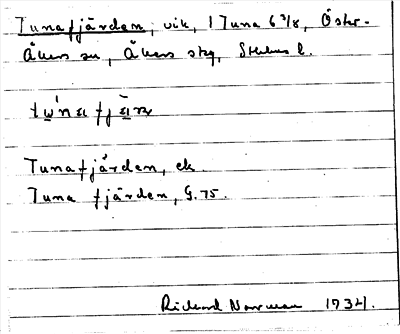 Tunafjärden, vik, 1 Tuna 6 3/8, Öster-
Åkers sn, Åkers skg, Sthlms l.
Tunafjärden, ek.
Tuna fjärden, G. 75.
Richard Norrman 1934.